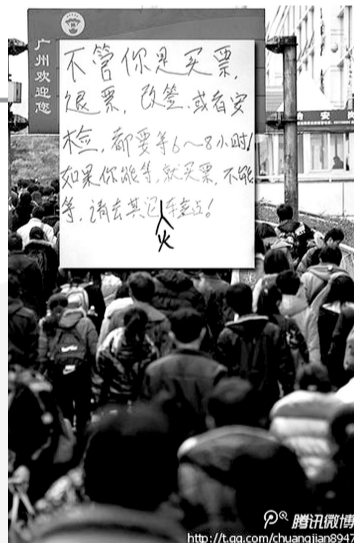 广州欢迎您
不管你是买票,
退票,改签,或者安
检,都要等6~8小时!
如果你能等,就买票,不能
等,请去其它车卖点!
火
治安
腾讯微博
http://t.qq.com/chuangjian8947